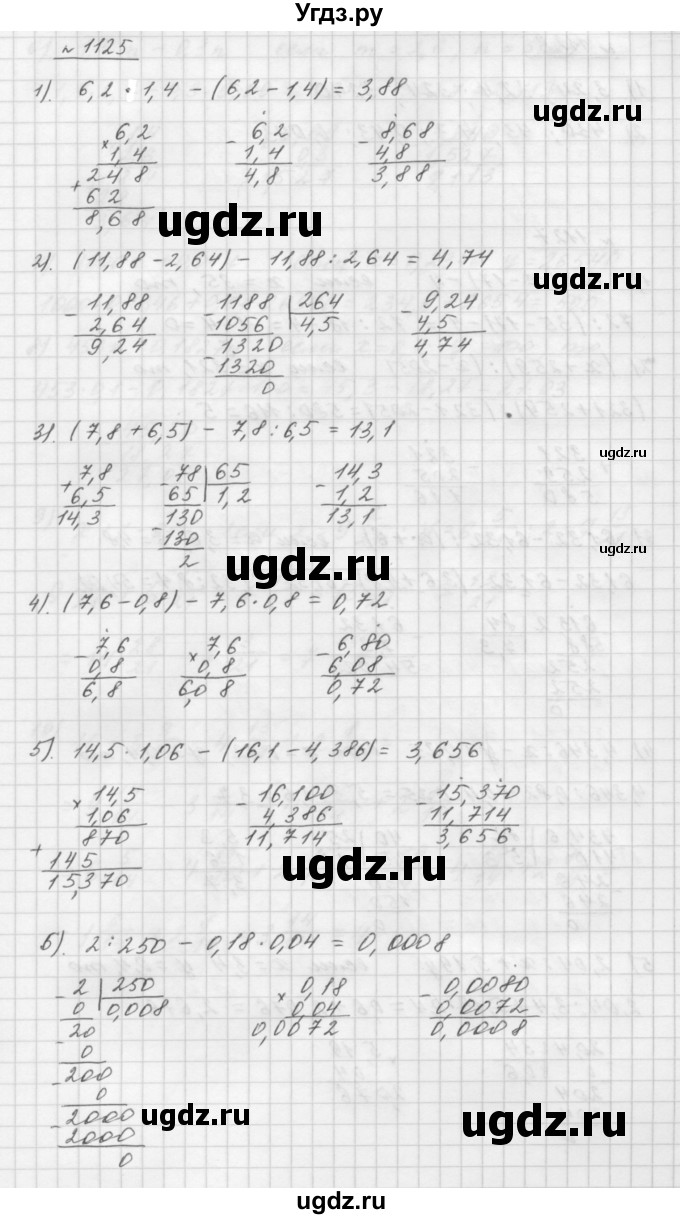 Угдз.ру
№ 1125
1). 6,2 · 1,4 - (6,2 - 1,4) = 3,88
ugdz.ru
× 6,2   - 6,2   - 8,68
1,4   1,4   4,8
248   4,8   3,88
+ 62
8,68
ugdz.ru
ugdz.ru
2). (11,88 - 2,64) - 11,88 : 2,64 = 4,74
ugdz.ru
- 11,88   - 1188 | 264   - 9,24
2,64   1056 | 4,5   4,5
9,24   - 1320   4,74
1320
0
3). (7,8 + 6,5) - 7,8 : 6,5 = 13,1
ugdz.ru
+ 7,8   - 78 | 65   - 14,3
6,5   65 | 1,2   1,2
14,3   - 130   13,1
130
2
ugdz.ru
ugdz.ru
4). (7,6 - 0,8) - 7,6 · 0,8 = 0,72
- 7,6   × 7,6   - 6,80
0,8   0,8   6,08
6,8   6,08   0,72
ugdz.ru
5). 14,5 · 1,06 - (16,1 - 4,386) = 3,656
× 14,5   - 16,100   - 15,370
1,06   4,386   11,714
870   11,714   3,656
+ 145
15,370
ugdz.ru
6). 2 : 250 - 0,18 · 0,04 = 0,0008
- 2 | 250   × 0,18   - 0,0080
0 | 0,008   0,04   0,0072
- 20   0,0072   0,0008
0
- 200
0
- 2000
2000
0
ugdz.ru
ugdz.ru
ugdz.ru